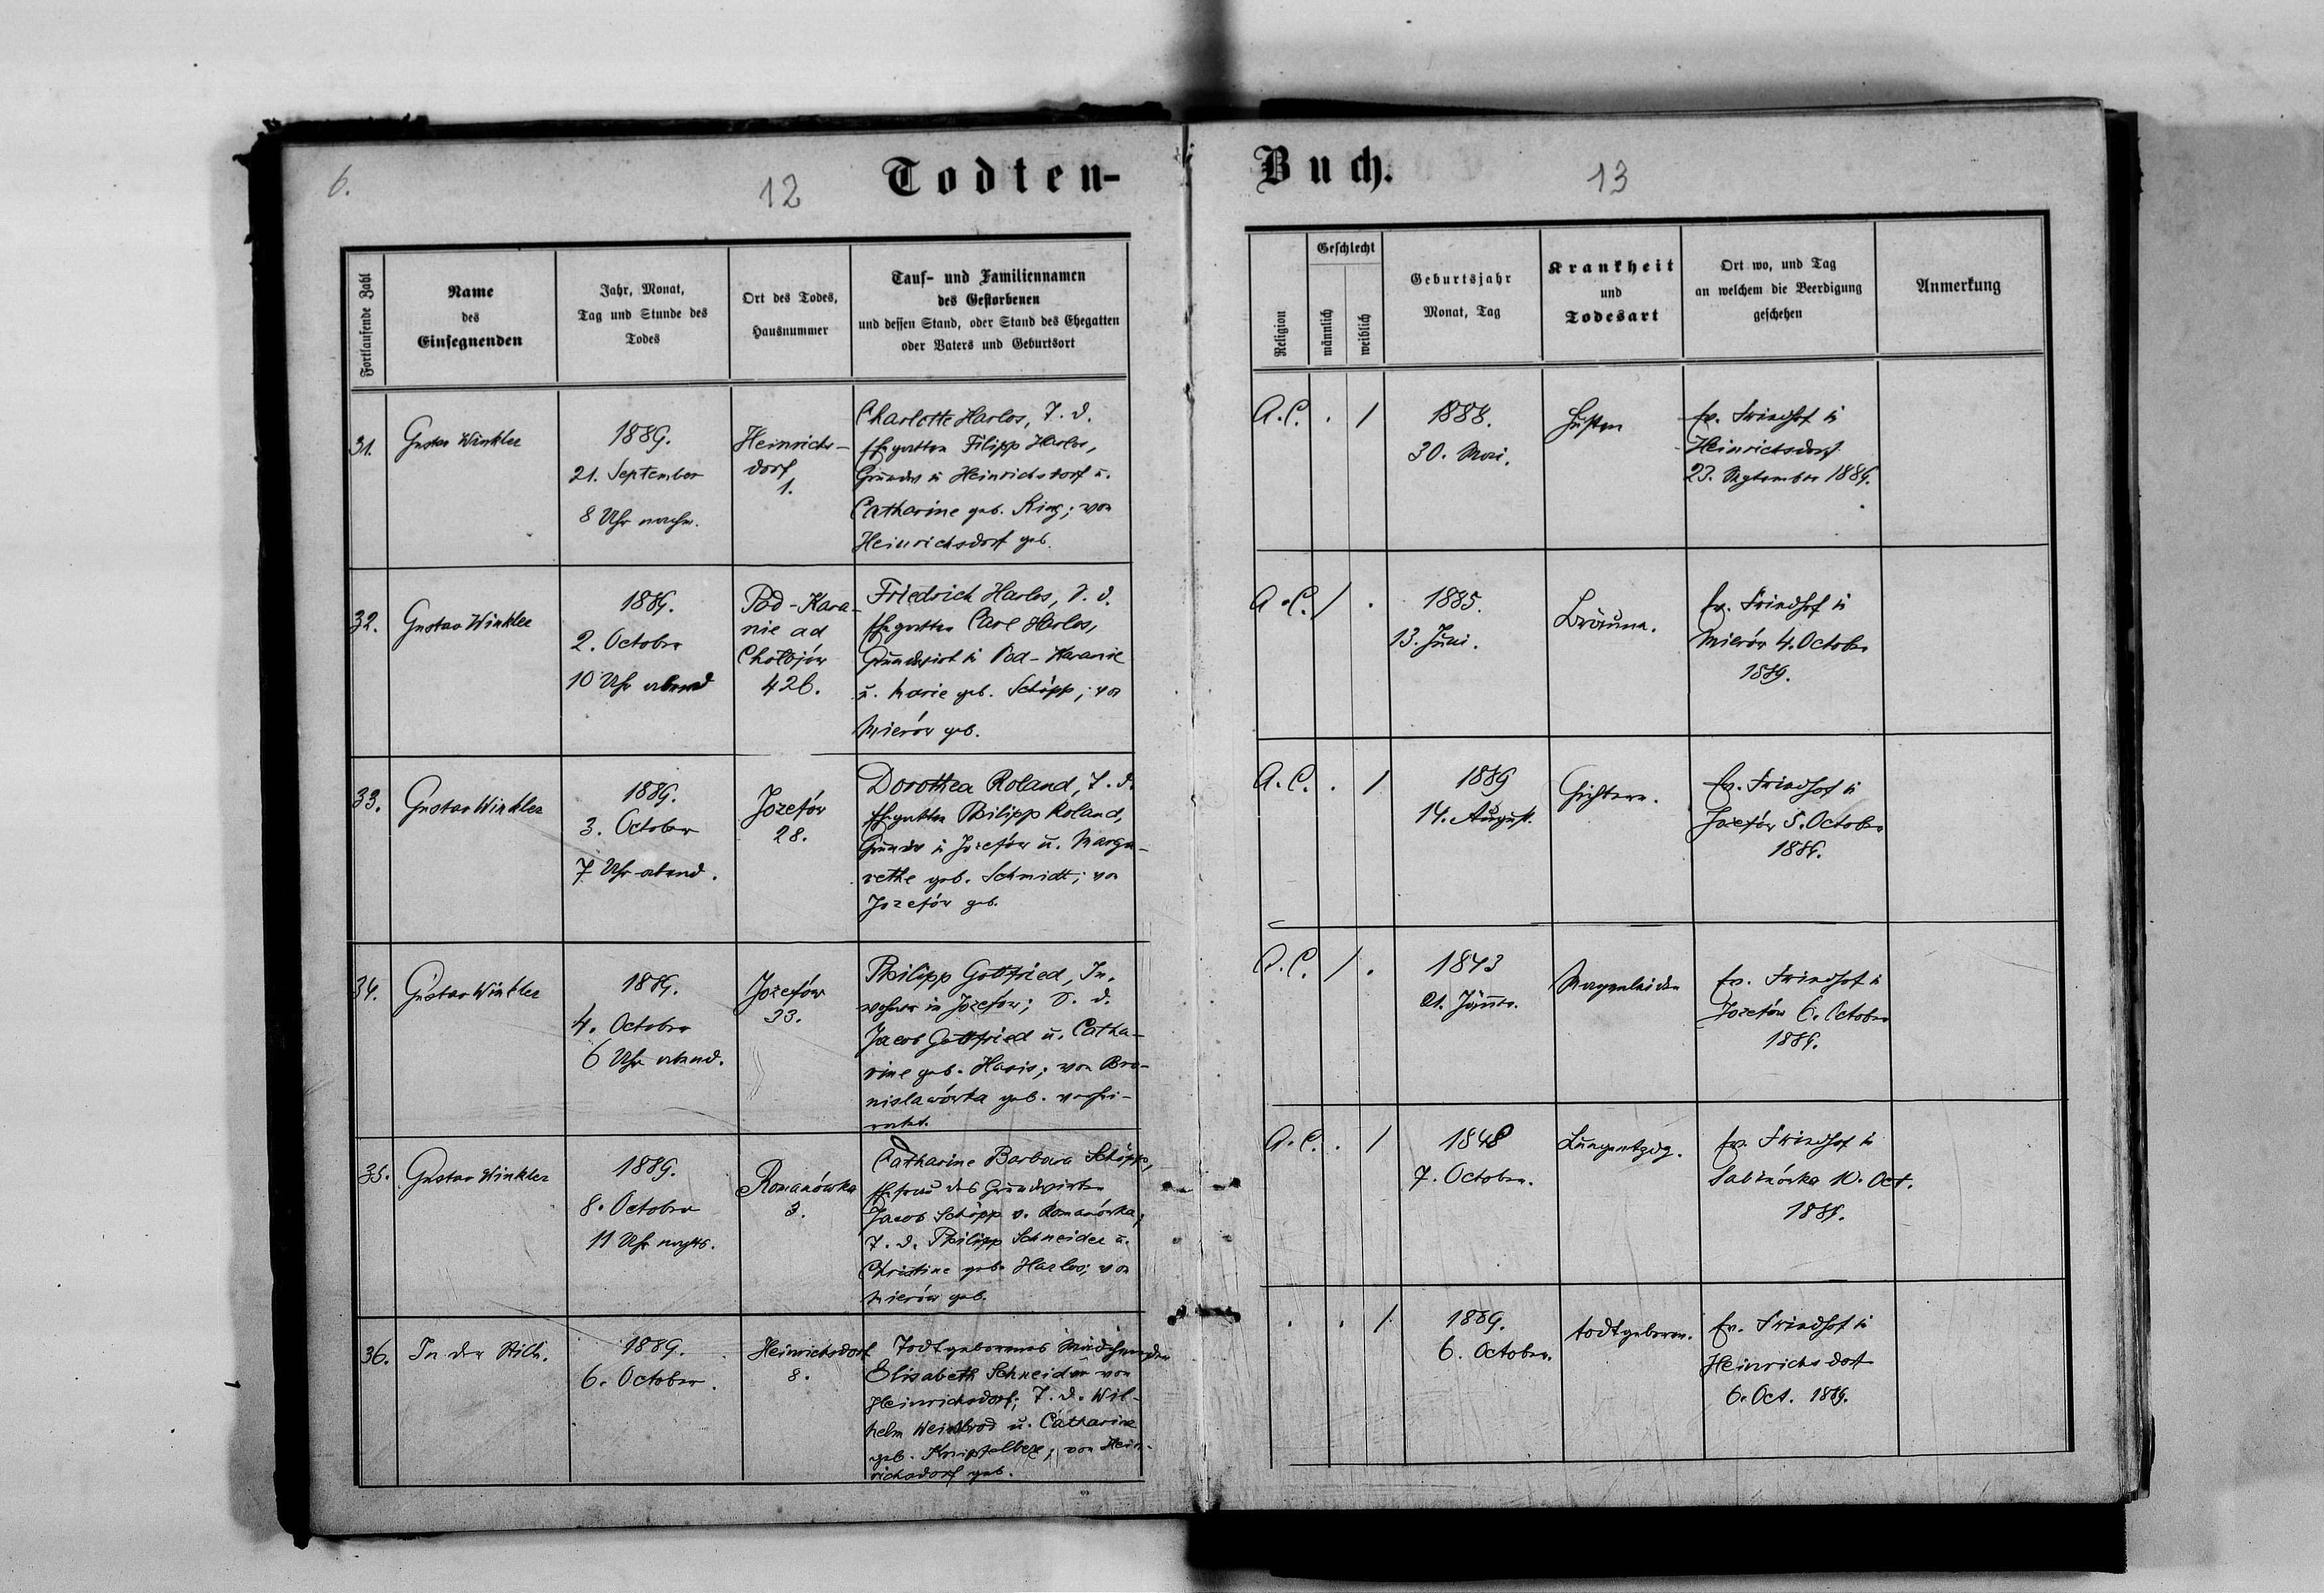 6.
12
Todten-
Buch.
13
Fortlaufende Zahl
Name
des
Einsegnenden
Jahr, Monat,
Tag und Stunde des
Todes
Ort des Todes,
Hausnummer
Tauf- und Familiennamen
des Gestorbenen
und dessen Stand, oder Stand des Ehegatten
oder Vaters und Geburtsort
Religion
Geschlecht
männlich
weiblich
Geburtsjahr
Monat, Tag
Krankheit
und
Todesart
Ort wo, und Tag
an welchem die Beerdigung
geschehen
Anmerkung
31.
Gustav Winkler
1889.
21. September
8 Uhr nachm.
Heinrichs-
dorf
1.
Charlotte Harlos, T. d.
Ehegatten Filipp Harlos,
Grundw. in Heinrichsdorf u.
Catharine geb. Ring; von
Heinrichsdorf geb.
A.C. . /
1888.
30. Mai.
Husten
Ev. Friedhof in
Heinrichsdorf
23. September 1889.
32.
Gustav Winkler
1889.
2. October
10 Uhr abend
Pod-Kara-
nie ad
Chołojów
426.
Friedrich Harlos, S. d.
Ehegatten Carl Harlos,
Grundwirt in Pod-Karanie
u. Marie geb. Schöpp; von
Mierów geb.
A.C. / .
1885.
13. Juni.
Bräune.
Ev. Friedhof in
Mierów 4. October
1889.
33.
Gustav Winkler
1889.
3. October
7 Uhr abend.
Jozefów
28.
Dorothea Roland, T. d.
Ehegatten Philipp Roland,
Grundw. in Jozefów u. Marga-
rethe geb. Schmidt; von
Jozefów geb.
A.C. . /
1889
14. August.
Gichtern.
Ev. Friedhof in
Jozefów 5. October
1889.
34.
Gustav Winkler
1889.
4. October
6 Uhr abend.
Jozefów
33.
Philipp Gottfried, In-
wohner in Jozefów; S. d.
Jacob Gottfried u. Catha-
rine geb. Haris; von Bro-
nislawówka geb. verhei-
ratet.
A.C. / .
1843
21. Jänner.
Magenleiden
Ev. Friedhof in
Jozefów 6. October
1889.
35.
Gustav Winkler
1889.
8. October
11 Uhr nachts.
Romanówka
3.
Catharine Barbara Schöpp,
Ehefrau des Grundwirten
Jacob Schöpp v. Romanówka;
T. d. Philipp Schneider u.
Christine geb. Harlos; von
Mierów geb.
A.C. . /
1848
7. October.
Lungentzdg.
Ev. Friedhof in
Sabinówka 10. Oct.
1889.
36.
In der Stille.
1889.
6. October.
Heinrichsdorf
8.
Todtgeborenes Mädchen der
Elisabeth Schneider von
Heinrichsdorf; T. d. Wil-
helm Weinbrod u. Catharine
geb. von Hein-
richsdorf geb.
. . /
1889.
6. October.
todtgeboren.
Ev. Friedhof in
Heinrichsdorf
6. Oct. 1889.